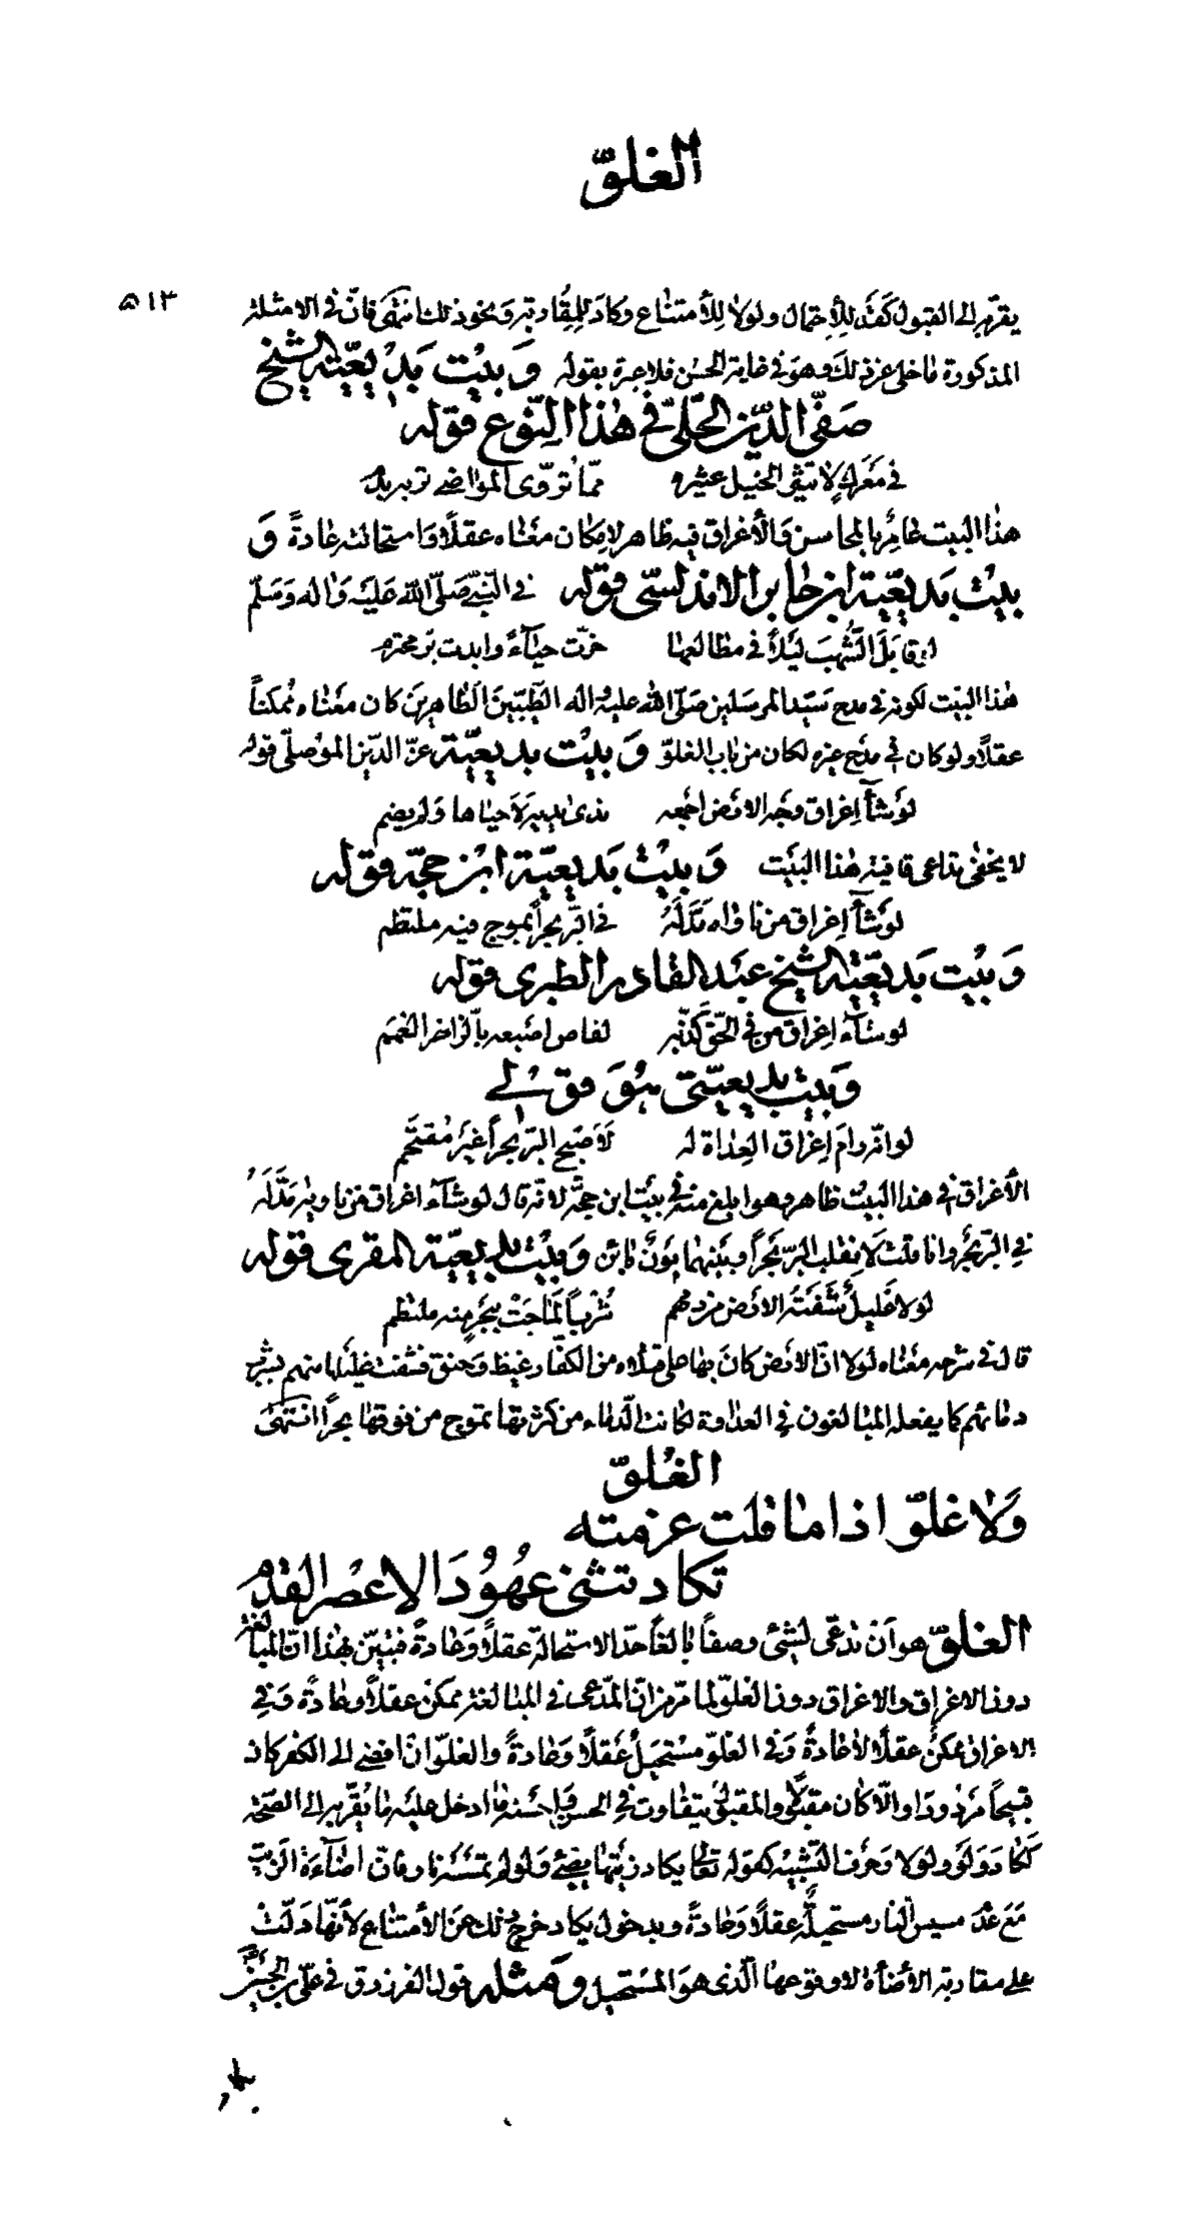 الغلوّ
٥١٣
يقرّبه الى القبول كقد للأحتمال ولولا للأمتناع وكاد للمقاربة ونحو ذلك انتهى فانّ فى الامثلة
المذكورة ما خلى عن ذلك وهو فى غاية الحسن فلا عبرة بقوله وَبَيْت بَدِيعيّة الشيخ
صَفّى الدّين الحلّى فى هٰذا النّوع قوله
فى مَعَركٍ لا تثير الخيل عثيره ممّا تُروّى المواضى تربه بدم
هذا البيت عامر بالمحاسن وَالأغراق فيه ظاهر لامكان معناه عقلاً وَاستحالته عادةً وَ
بيْت بَديعيّة ابن جابر الاندلسّى قوله فى النّبى صَلّى اللّه عَليْه وَاٰله وَسَلّم
لو قابَلَ الشُّهبَ ليْلاً فى مطالعها خرّت حيآءً وابدت برّ محترم
هٰذا البيْت لكونه فى مدح سَيّد المرسَلين صَلّى اللّه عليْه واله الطّيّبينَ الطّاهِرينَ كان معْناه مُمكناً
عقلاً ولو كان فى مدَح غيره لكان من باب الغلوّ وَبيْت بديعيّة عزّ الدّين الموْصلّى قوله
لو شآءَ اغراق وجه الارض اجمعه ندى يديه لاحياها ولم يضم
لا يخفى تداعى قافية هٰذا البيَت وَبيْت بَديعيّة ابْن حجّة قوله
لو شآءَ اغراق من ناواه مَدَّ لَهُ فى البّر بحراً بموج فيه ملتطم
وَبيْت بَديعيّة الشيخ عبَد القادر الطبرى قوله
لو شآء اغراق من فى الحّق كذّبه لفاض اصبعه بالزاخر العَمَم
وَبيْت بديعيّتى هُوَ قوْلى
لو انّه رامَ اِغراق العِداة له لَأَصبَح البرّ بحراً غيْر مُقتحَم
الأغراق فى هذا البيْت ظاهر وهو ابلغ منه فى بيْت ابن حجّة لانّه قال لو شآء اغراق من ناويه مَدَّ لَهُ
فى البّر بحر وانا قلت لانقلب البّر بَحراً وبيْنهما بَوْنٌ بائن وَبيْت بديعيّة المقرى قوله
لولا غليلٌ شَفَتْهُ الارْض من دمهم شُرْباً لَماجَتْ ببحرٍ منه ملتطم
قال فى شرحه معْناه لولا انّ الارْض كانَ بها على عداه من الكفّار غيظ وَحنق فشفت غليلها منهم بشرب
دمائهم كما يفعله المبالغون فى العداوة لكانت الدّماء من كثرتها تموج من فوقها بحراً انْتهَى
الغُلوّ
وَلا غلوّ اذا ما قلت عزمته
تكاد تثنى عهُوُدَ الاعْصر القدُم
الغلوّ هو اَن تدّعى لشئ وصفاً بالغاً حدّ الاستحالة عقلاً وَعادةً فتبيّن بهٰذا انّ المبالغة
دون الاغراق والاغراق دون الغلوّ لما مرّ من انّ المدّعى فى المبالغة ممكن عقلاً وعادةً وَفى
الاغراق ممكنٌ عقلاً لا عادةً وَفى الغلوّ مسْتحيلٌ عَقلاً وَعادةً والغلوّ ان افضى الى الكفر كان
قبيحاً مَرْدوداً والّا كان مقبولاً والمقبول يتفاوت فى الحسن فاحسَنه ما ادخل عليْه ما يُقرّبه الى الصّحّة
ككادَ وَلَوْ ولولا وَحَرْف التّشبيْه كقوْله تعالى يكاد زيْتها يضئ وَلو لم تمسَسْه نار فانّ اضآءَة الزيت
مَعَ عَدَم مسيس النار مستحيلةٌ عقلاً وَعادةً وبدخول يكاد خرج ذلك عنَ الأمتناع لأنّها دَلّتْ
على مقاربة الأضائة لا وقوعها الّذى هوَ المسْتحيل وَمثْله قول الفرزدق فى علّى بن الحسيْن